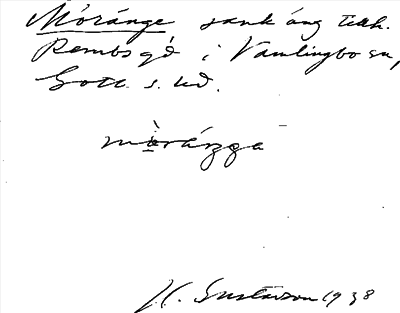 Móránge sank äng tillh.
Rembs gd i Vamlingbo sn,
Gotl. s. hd.
mòrángä
H. Gustavson 1938